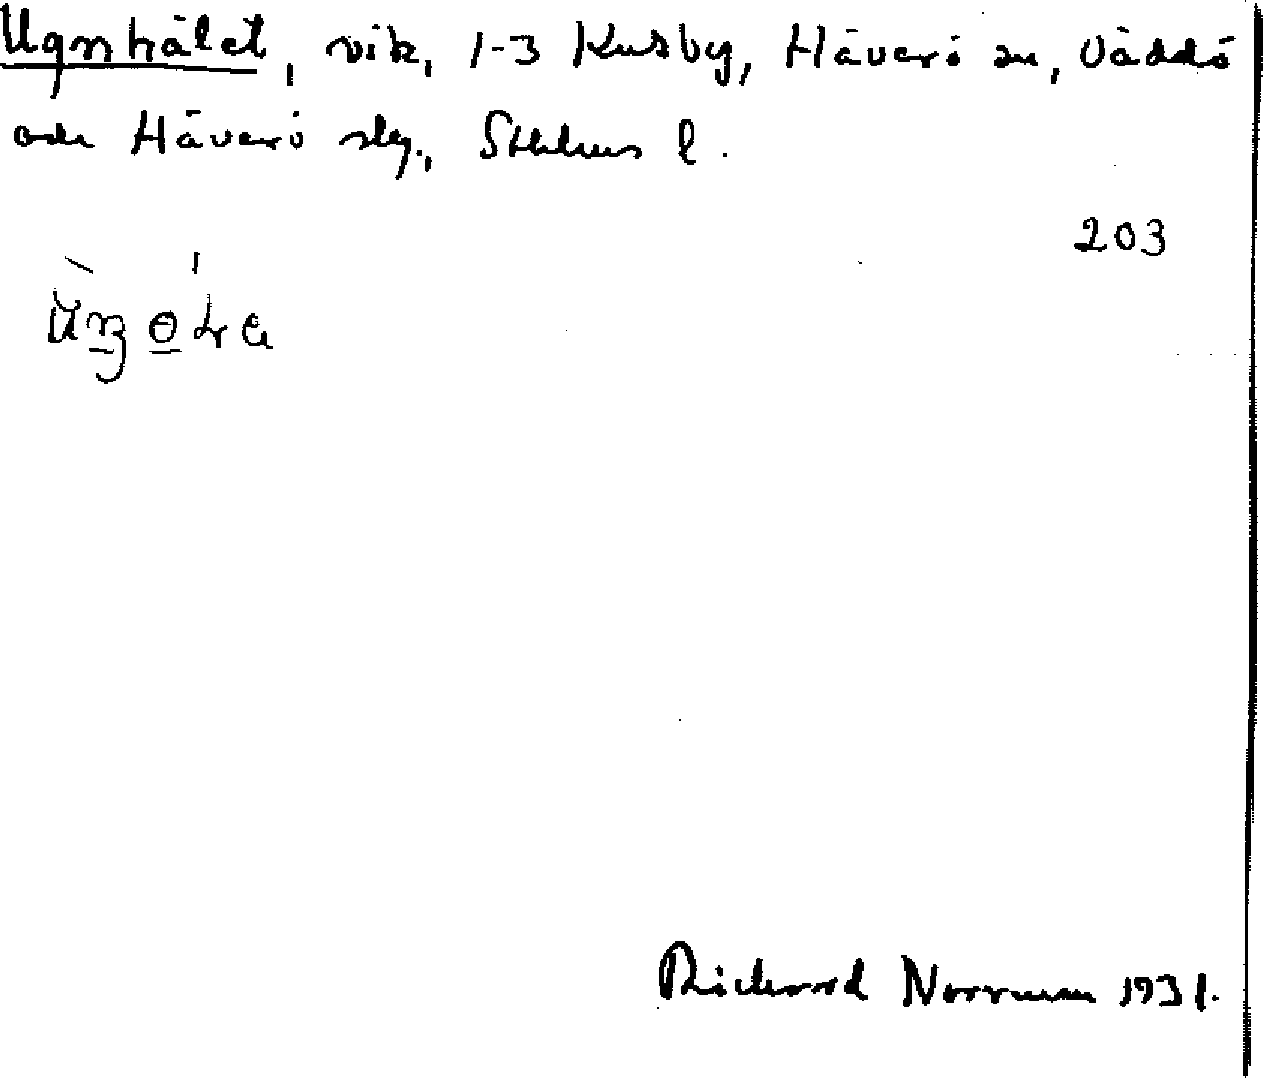 Ugnshålet, vik, 1-3 Kusby, Häverö sn, Väddö
och Häverö slg., Sthlms l.
203
Richard Norrman 1931.